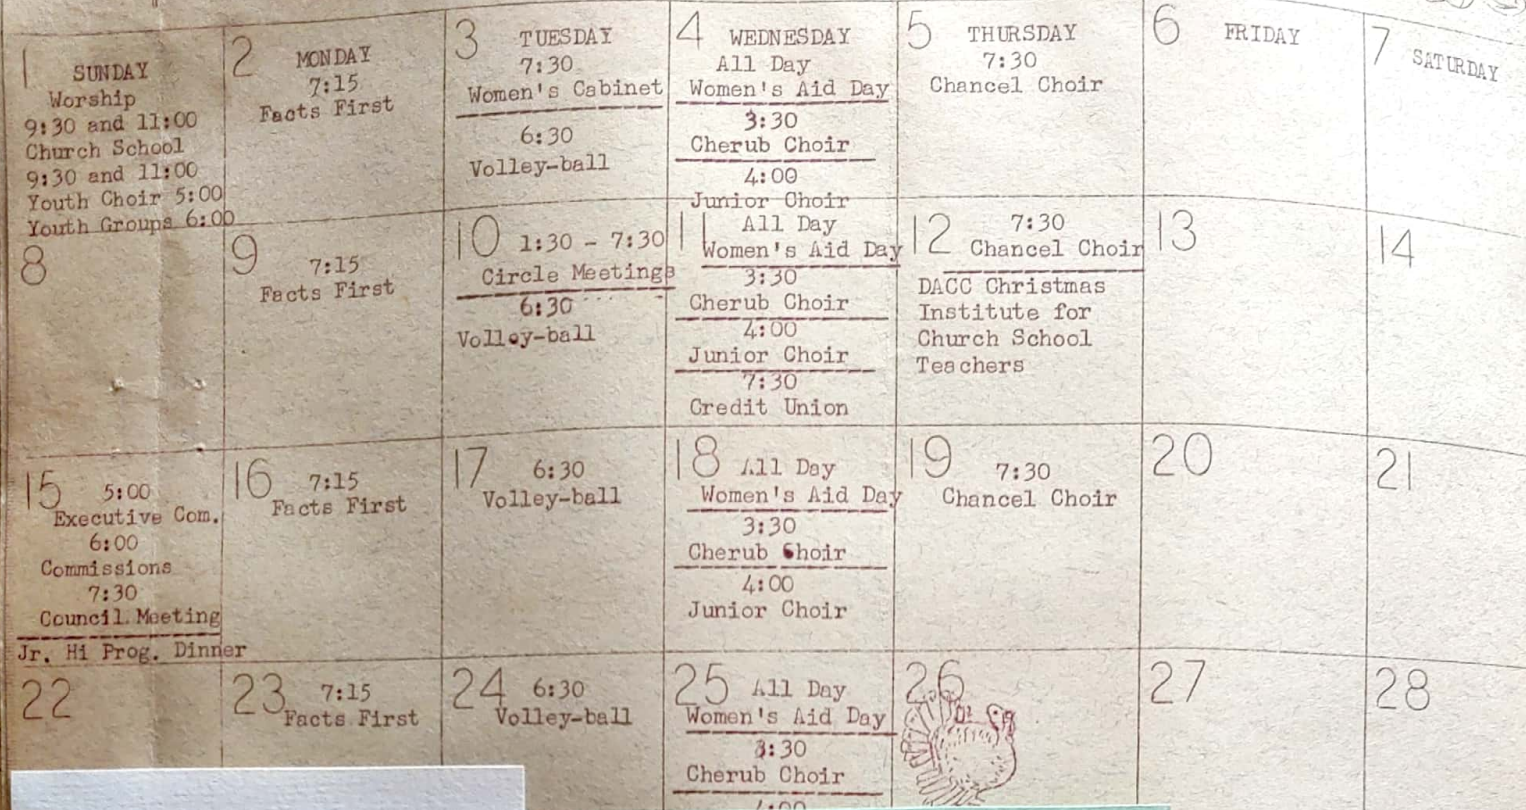 1 SUNDAY
Worship
9:30 and 11:00
Church School
9:30 and 11:00
Youth Choir 5:00
Youth Groups 6:00
2 MONDAY
7:15
Facts First
3 TUESDAY
7:30
Women's Cabinet
6:30
Volley-ball
4 WEDNESDAY
All Day
Women's Aid Day
3:30
Cherub Choir
4:00
Junior Choir
5 THURSDAY
7:30
Chancel Choir
6 FRIDAY
7 SATURDAY
8
9
7:15
Facts First
10 1:30 - 7:30
Circle Meetings
6:30
Volley-ball
11 All Day
Women's Aid Day
3:30
Cherub Choir
4:00
Junior Choir
7:30
Credit Union
12 7:30
Chancel Choir
DACC Christmas
Institute for
Church School
Teachers
13
14
15 5:00
Executive Com.
6:00
Commissions
7:30
Council Meeting
Jr. Hi Prog. Dinner
16 7:15
Facts First
17 6:30
Volley-ball
18 All Day
Women's Aid Day
3:30
Cherub Choir
4:00
Junior Choir
19 7:30
Chancel Choir
20
21
22
23 7:15
Facts First
24 6:30
Volley-ball
25 All Day
Women's Aid Day
3:30
Cherub Choir
4:00
26
27
28